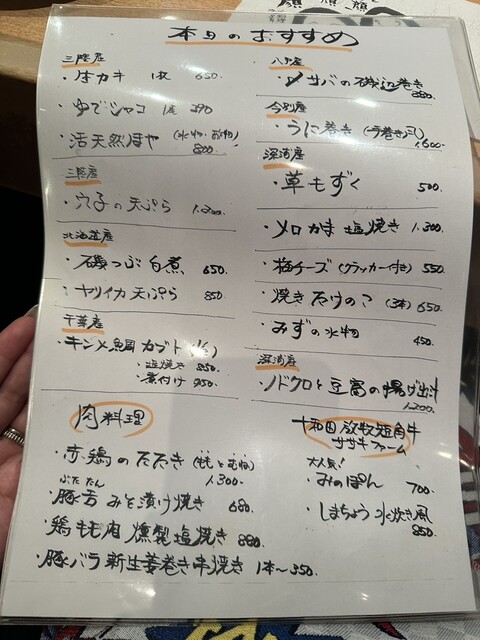 本日のおすすめ
三陸産
・生カキ 1枚 650.
・ゆでシャコ 1尾 390
・活天然ほや (水物・酢物) 800.
三陸産
・穴子の天ぷら 1,200.
北海道産
・磯つぶ旨煮 650.
・ヤリイカ天ぷら 850
千葉産
・キンメ鯛カブト (1/2)
・塩焼き 850.
・煮付け 950.
八戸産
・〆サバの磯辺巻き
880.
今別産
・うに巻き (手巻き)
1,600.
深浦産
・草もずく 500.
・メロカマ塩焼き 1,300
・梅チーズ (クラッカー付き) 550.
・焼きたけのこ (3本) 650
・みずの水物 450
深浦産
・ノドクロと豆腐の揚げ出汁
1,200.
肉料理
・赤鶏のたたき (ももとむね)
1,300
ぶたたん
・豚舌 みそ漬け焼き 680.
・鶏もも肉 燻製塩焼き 880.
・豚バラ新生姜巻き串焼き 1本〜350.
十和田 放牧短角牛
ササキファーム
大人気!
・みのぽん 700.
・しまちょう水炊き風
850.